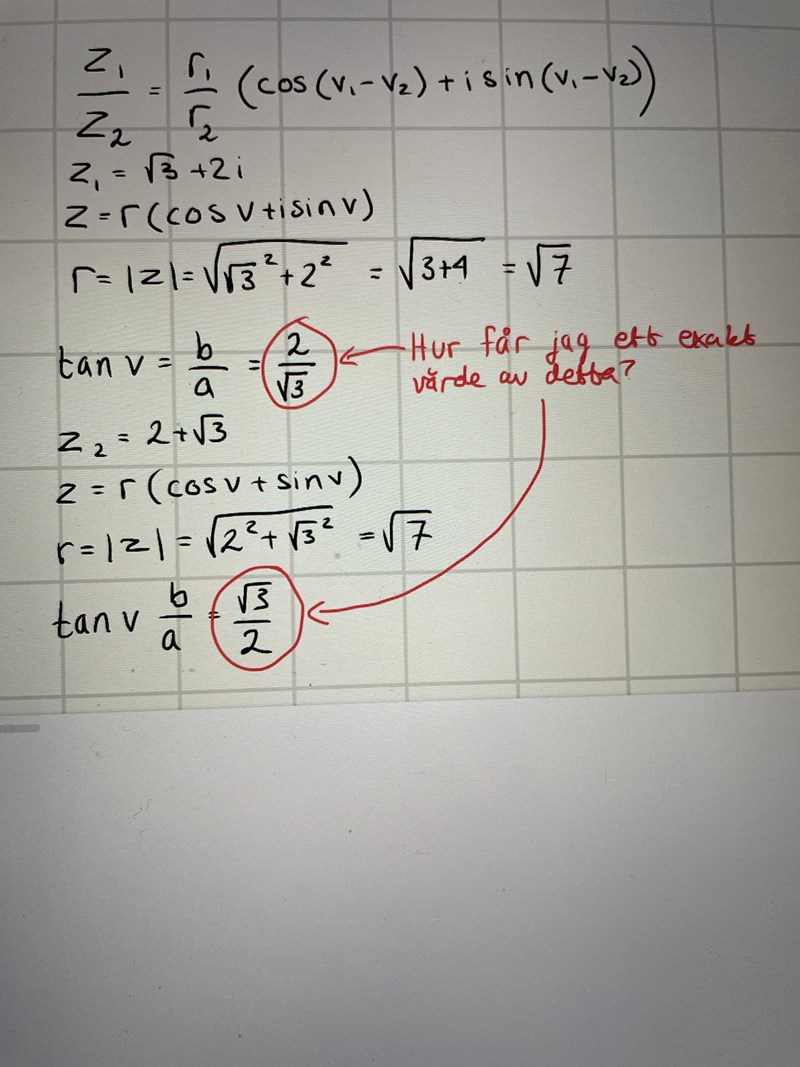 z₁/z₂ = r₁/r₂ (cos(v₁-v₂)+isin(v₁-v₂))
z₁ = √3 +2i
z=r(cosv+isinv)
r= |z|=√(√3²+2²) = √(3+4) = √7
tan v = b/a = 2/√3
Hur får jag ett exakt
värde av detta?
z₂ = 2+√3
z = r(cosv+sinv)
r=|z|=√(2²+√3²) =√7
tan v b/a = √3/2